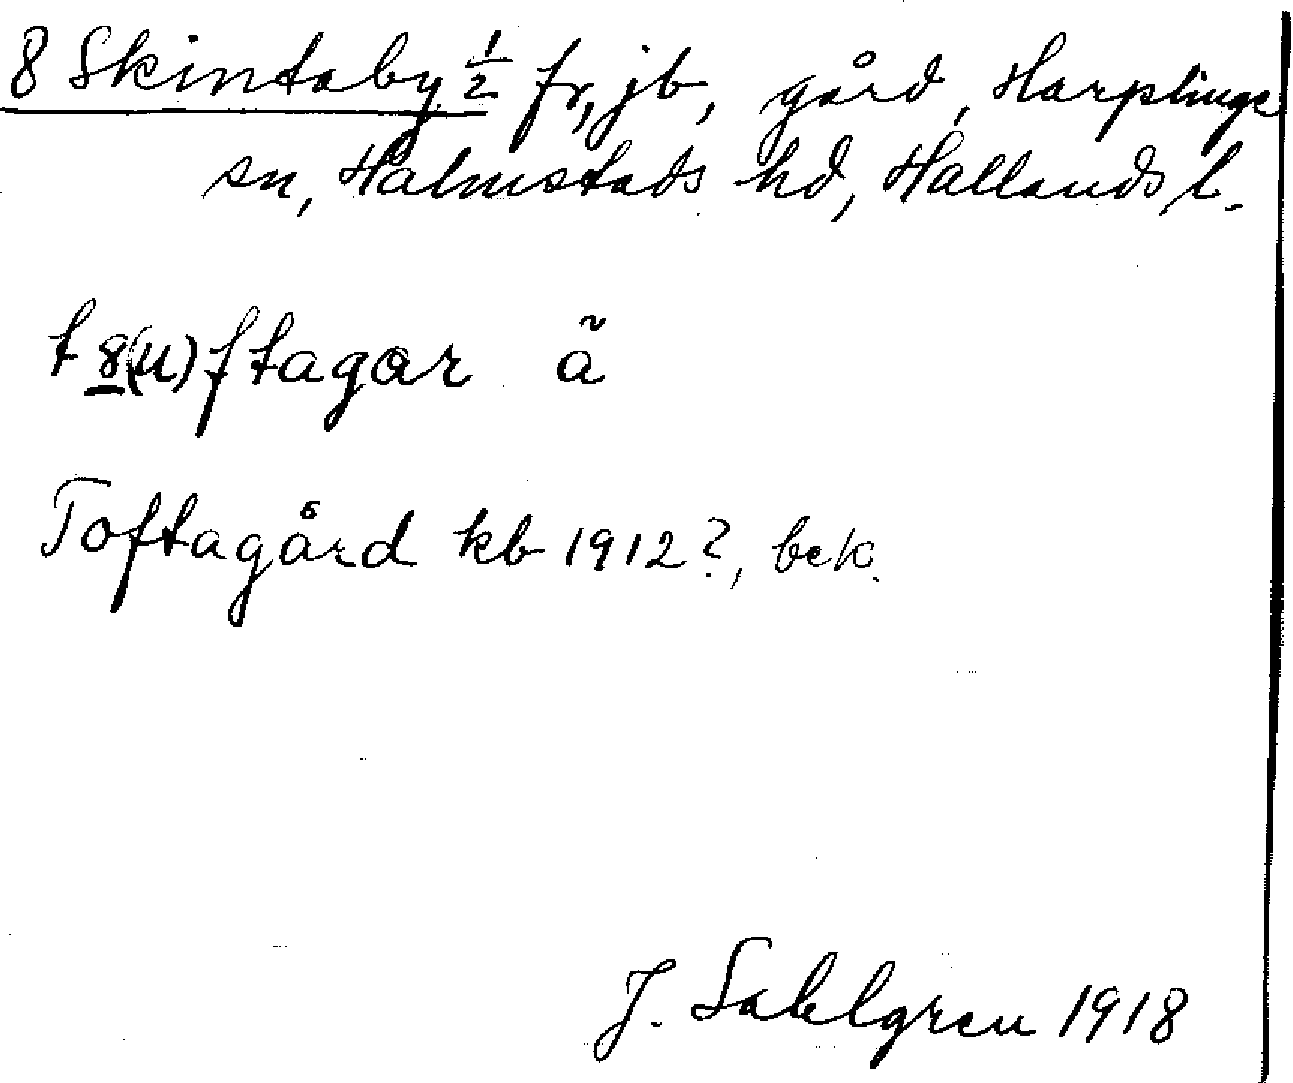 8 Skintaby ½ fr, jb, gård, Harplinge
sn, Halmstads hd, Hallands l.
t8(u)ftagar ã
Toftagård kb 1912?, bek.
J. Sahlgren 1918